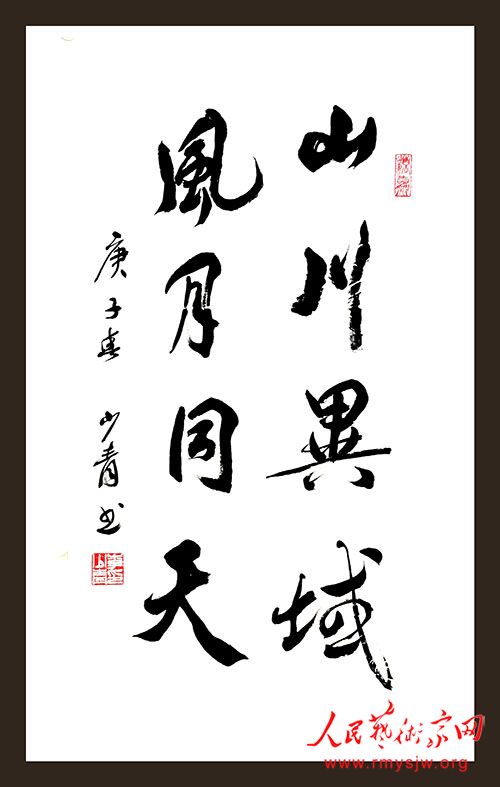 山川異域
風月同天
庚子春 少青书
人民藝術家网
www.rmysjw.org